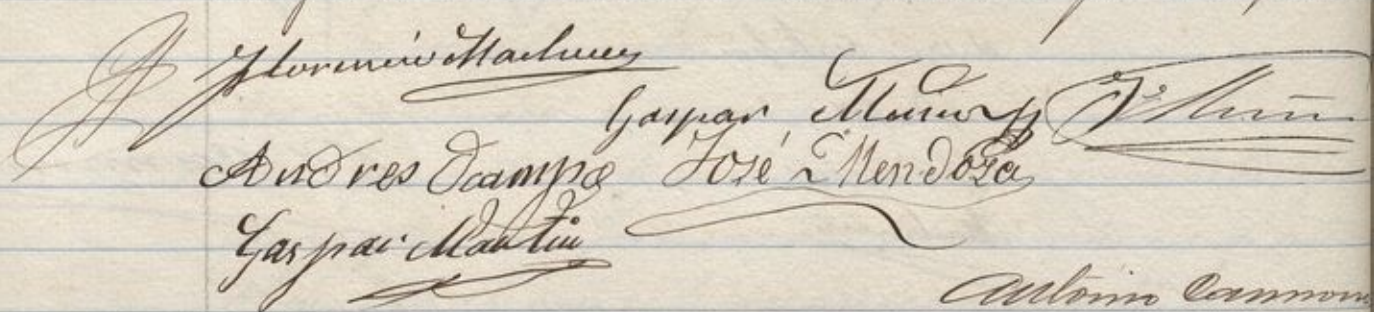 Florencio Machuca
Gaspar Munoz
Andres Ocampo José Mendoza
Gaspar Martin
Antonio